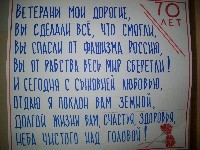 Ветерани мои дорогие,
70 лет
Вы сделали всё, что смогли,
Вы спасли от фашизма Россию,
Вы от рабства весь мир сберегли!
И сегодня с сыновней любовью,
Отдаю я поклон вам земной,
Долгой жизни вам, счастья, здоровья,
Неба чистого над головой!